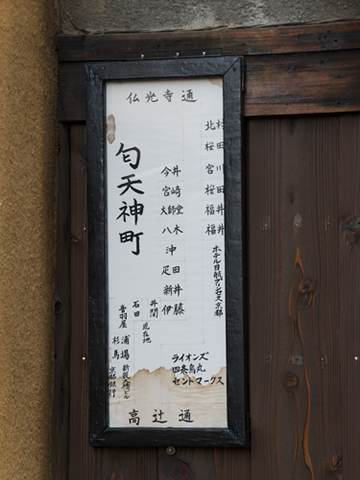 仏光寺通
北村
桜田
宮川
桜田
福井
福井
ホテル日航プリンセス京都
今井
宮崎
大師堂
八木
沖
疋田
新井
伊藤
匂天神町
井関
現在地
石田
音羽屋
杉浦
馬場
京都銀行
ライオンズ
四条烏丸
セントマークス
高辻通